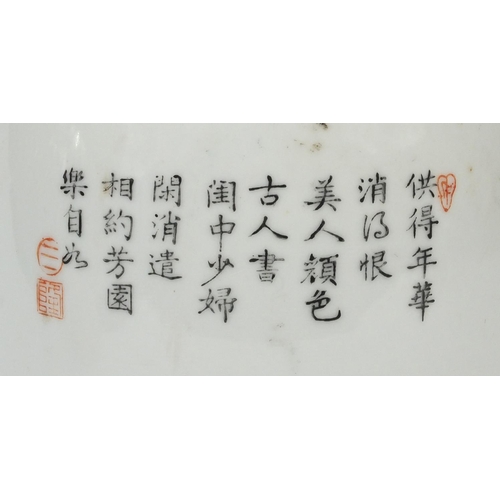 供得年華
消得恨
美人顏色
古人書
閨中少婦
閑消遣
相約芳園
樂自如